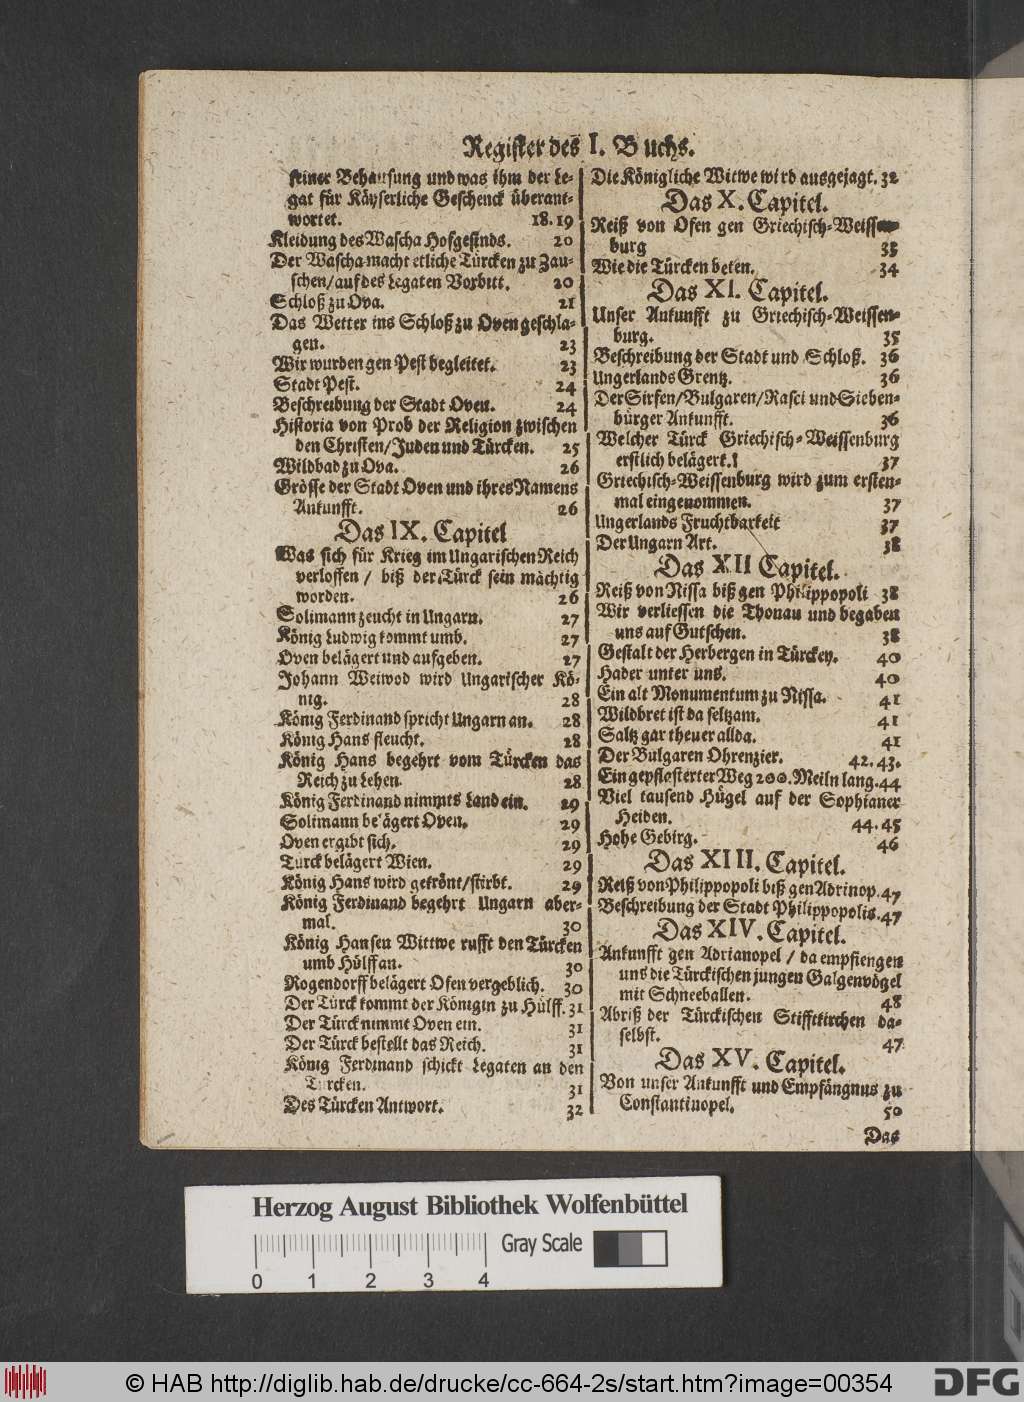 Register des I. Buchs.
seiner Behausung und was ihm der Le-
gat für Käyserliche Geschenck überant-
wortet. 18.19
Kleidung des Wascha Hofgesinds. 20
Der Wascha macht etliche Türcken zu Zau-
schen/auf des Legaten Vorbitt. 20
Schloß zu Ova. 21
Das Wetter ins Schloß zu Oven geschla-
gen. 23
Wir wurden gen Pest begleitet. 23
Stadt Pest. 24
Beschreibung der Stadt Oven. 24
Historia von Prob der Religion zwischen
den Christen/Juden und Türcken. 25
Wildbad zu Ova. 26
Grösse der Stadt Oven und ihres Namens
Ankunfft. 26
Das IX. Capitel
Was sich für Krieg im Ungarischen Reich
verloffen / biß der Türck sein mächtig
worden. 26
Solimann zeucht in Ungarn. 27
König Ludwig kommt umb. 27
Oven belägert und aufgeben. 27
Johann Weiwod wird Ungarischer Kö-
nig. 28
König Ferdinand spricht Ungarn an. 28
König Hans fleucht. 28
König Hans begehrt vom Türcken das
Reich zu Lehen. 28
König Ferdinand nimmts Land ein. 29
Solimann belägert Oven. 29
Oven ergibt sich. 29
Turck belägert Wien. 29
König Hans wird gekrönt/stirbt. 29
König Ferdinand begehrt Ungarn aber-
mal. 30
König Hansen Wittwe rufft den Türcken
umb Hülff an. 30
Rogendorff belägert Ofen vergeblich. 30
Der Türck kommt der Königin zu Hülff. 31
Der Türck nimmt Oven ein. 31
Der Türck bestellt das Reich. 31
König Ferdinand schickt Legaten an den
Türcken. 31
Des Türcken Antwort. 32
Die Königliche Witwe wird ausgejagt. 32
Das X. Capitel.
Reiß von Ofen gen Griechisch-Weissen-
burg 33
Wie die Türcken beten. 34
Das XI. Capitel.
Unser Ankunfft zu Griechisch-Weissen-
burg. 35
Beschreibung der Stadt und Schloß. 36
Ungerlands Grentz. 36
Der Sirfen/Bulgaren/Rasci und Sieben-
bürger Ankunfft. 36
Welcher Türck Griechisch-Weissenburg
erstlich belägert. 37
Griechisch-Weissenburg wird zum ersten-
mal eingenommen. 37
Ungerlands Fruchtbarkeit 37
Der Ungarn Art. 38
Das XII Capitel.
Reiß von Nissa biß gen Philippopoli 38
Wir verliessen die Thonau und begaben
uns auf Gutschen. 38
Gestalt der Herbergen in Türckey. 40
Hader unter uns. 40
Ein alt Monumentum zu Nissa. 41
Wildbret ist da seltzam. 41
Saltz gar theuer allda. 41
Der Bulgaren Ohrenzier. 42.43.
Ein gepflasterter Weg 200. Meiln lang. 44
Viel tausend Hügel auf der Sophianer
Heiden. 44.45
Hohe Gebirg. 46
Das XIII. Capitel.
Reiß von Philippopoli biß gen Adrinop. 47
Beschreibung der Stadt Philippopolis. 47
Das XIV. Capitel.
Ankunfft gen Adrianopel / da empfiengen
uns die Türckischen jungen Galgenvögel
mit Schneeballen. 48
Abriß der Türckischen Stifftkirchen da-
selbst. 47
Das XV. Capitel.
Von unser Ankunfft und Empfängnus zu
Constantinopel. 50
Das
Herzog August Bibliothek Wolfenbüttel
Gray Scale
0 1 2 3 4
© HAB http://diglib.hab.de/drucke/cc-664-2s/start.htm?image=00354
DFG